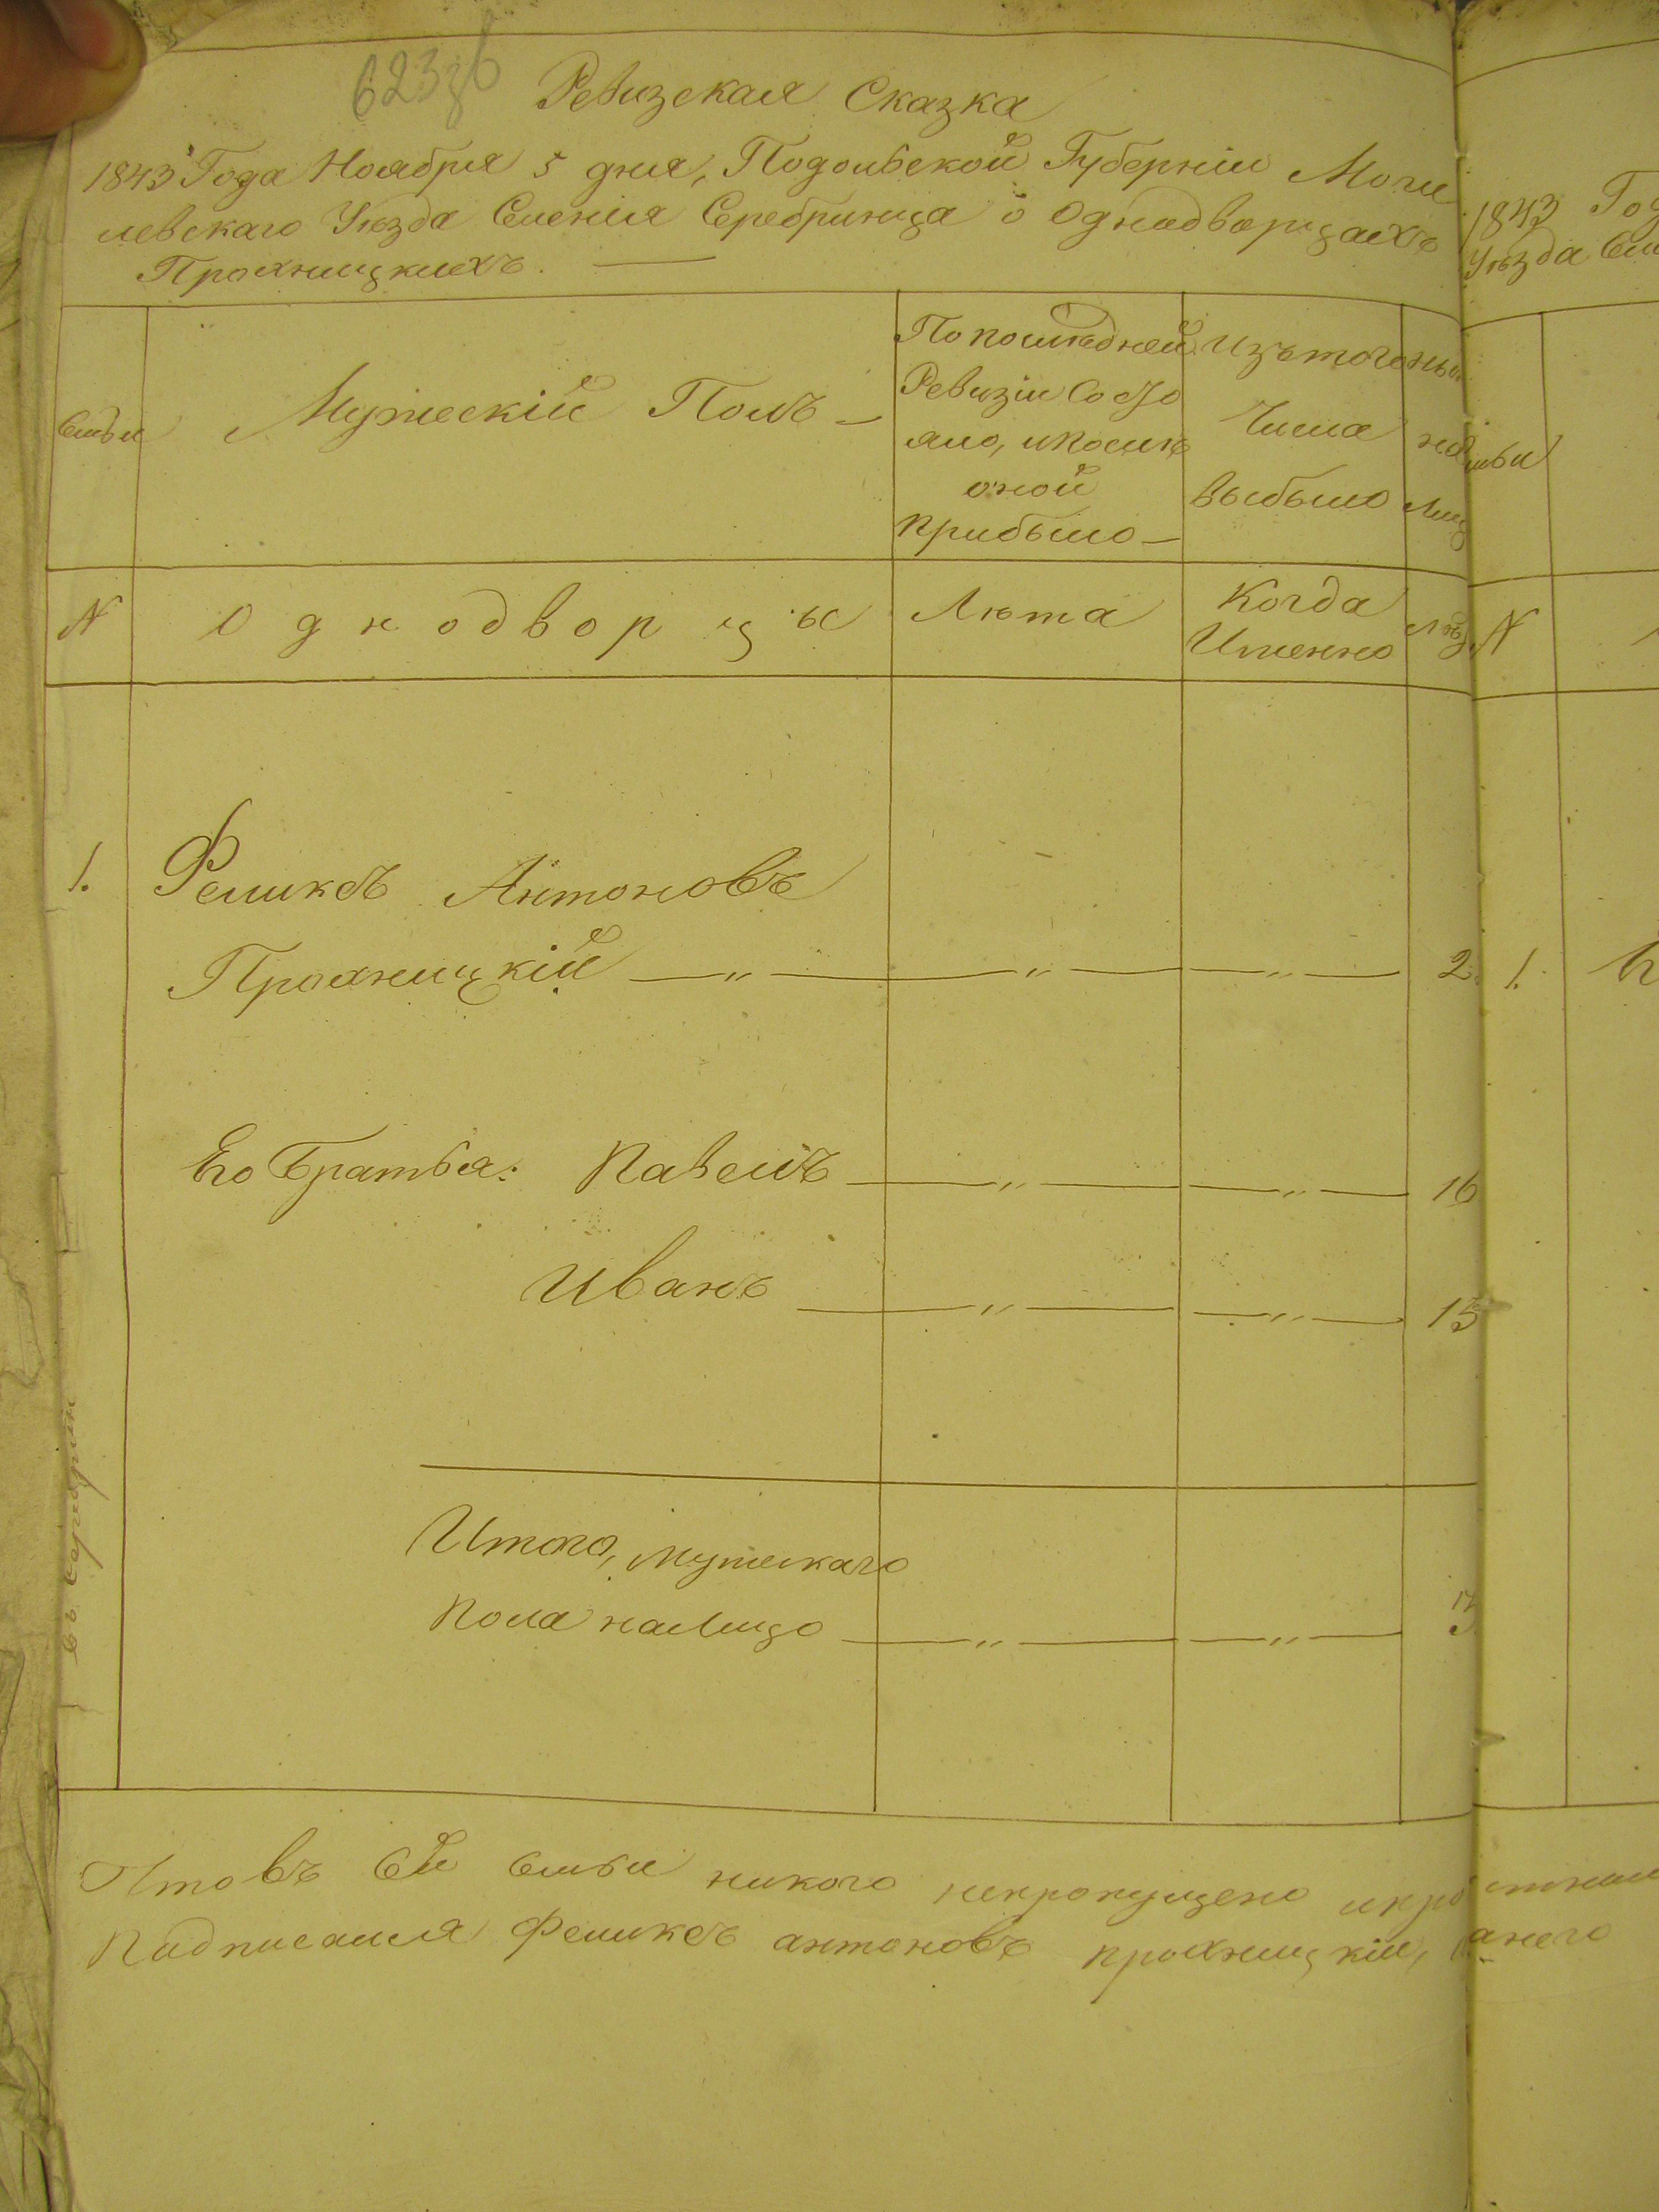 623зв
Ревизская Сказка
1843 Года Ноября 5 дня, Подольской Губерніи Моги
левскаго Уезда Селенія Серебринца о Однодворцахъ
Прохницкихъ. —
Семьи
Мужескій Полъ —
По последней
Ревизіи Состо
яло, и после
оной
прибыло —
Изъ того
Числа
выбыло
ныне
на
лиц
N
Однодворцы
Лета
Когда
Именно
Лет
1.
Феликсъ Антоновъ
Прохницкій — „ — — „ — — „ — 2
Его Братья: Павелъ — „ — — „ — 16
Иванъ — „ — — „ — 15
Итого, мужескаго
Пола налицо — „ — — „ — 3.
Что въ Сей Семьи никого непропущено
Подписался Феликсъ антоновъ прохницкій,
1843 Год
Уезда Сел
мьи
N
1.